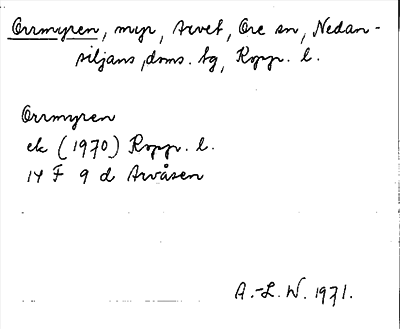 Orrmyren, myr, Arvet, Ore sn, Nedan-
siljans doms. tg, Kopp. l.
Orrmyren
ek (1970) Kopp. l.
14 F 9 d Arvåsen
A.-L. W. 1971.